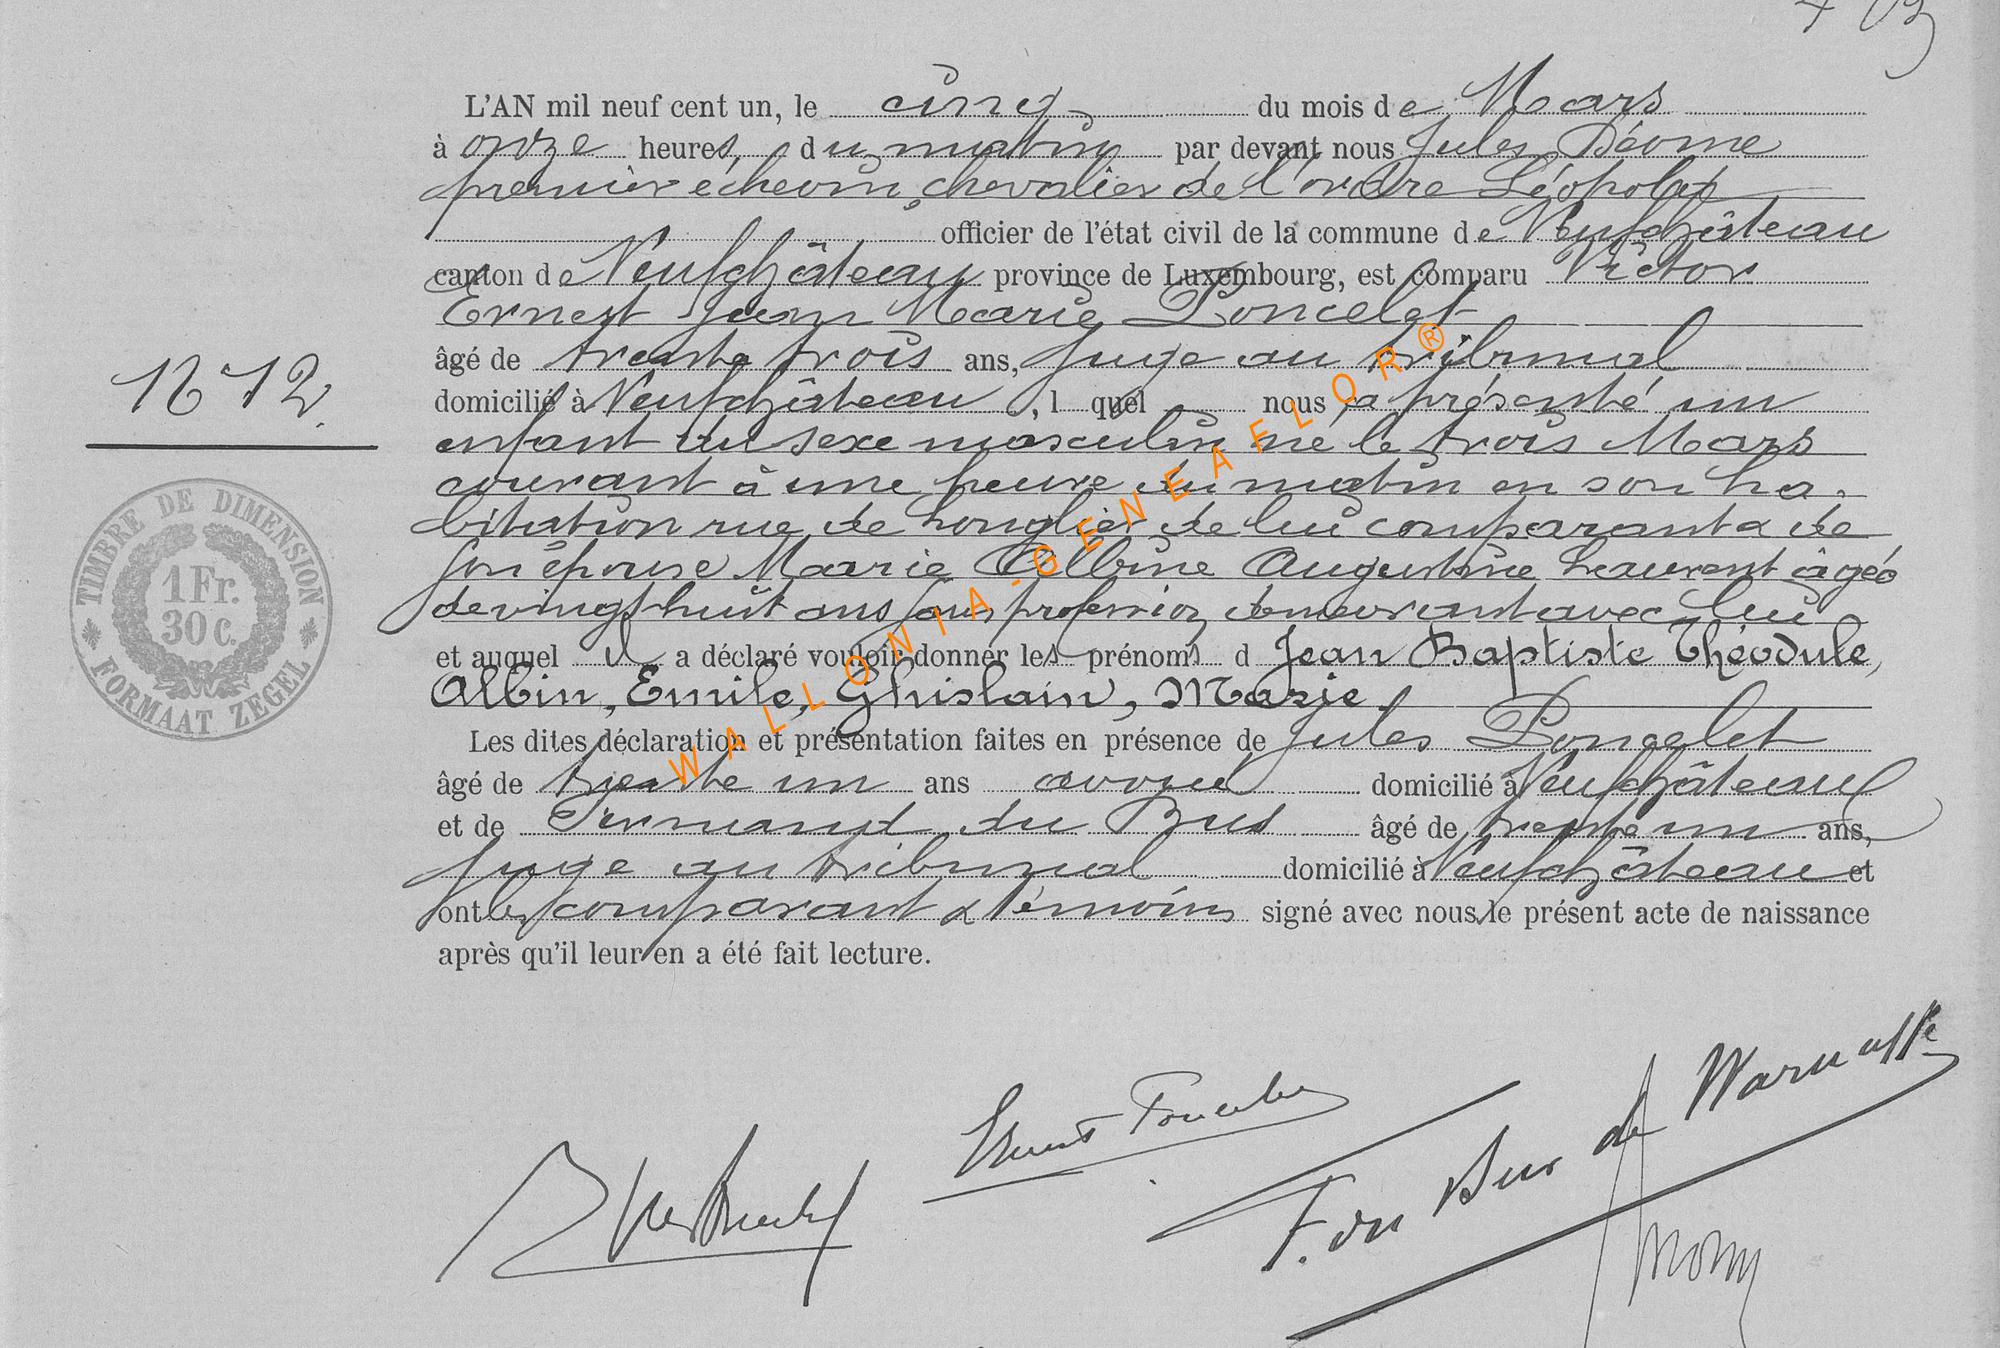 L'AN mil neuf cent un, le cinq du mois de Mars
à onze heures, du matin par devant nous Jules
premier échevin, chevalier de l'ordre Léopold
officier de l'état civil de la commune de Neufchâteau
canton de Neufchâteau province de Luxembourg, est comparu Victor
Ernest Jean Marie Poncelet
âgé de trente trois ans, Juge au tribunal
N° 12.
domicilié à Neufchâteau, l quel nous a présenté un
enfant du sexe masculin né le trois Mars
courant à une heure du matin en son ha-
bitation rue de Longlier de lui comparant & de
son épouse Marie Albine Augustine Laurent âgée
de vingt huit ans sans profession demeurant avec lui
et auquel il a déclaré vouloir donner les prénoms d Jean Baptiste Théodule,
Albin, Emile, Ghislain, Marie.
Les dites déclaration et présentation faites en présence de Jules Poncelet
âgé de trente un ans avoué domicilié à Neufchâteau
et de Fernand du Bus âgé de trente un ans,
juge au tribunal domicilié à Neufchâteau et
ont les comparant & témoins signé avec nous le présent acte de naissance
après qu'il leur en a été fait lecture.
TIMBRE DE DIMENSION
1 Fr.
30 c.
FORMAAT ZEGEL
WALLONIA-GENEAFLOR®
Ernest Poncelet
F. du Bus de Warnaffe